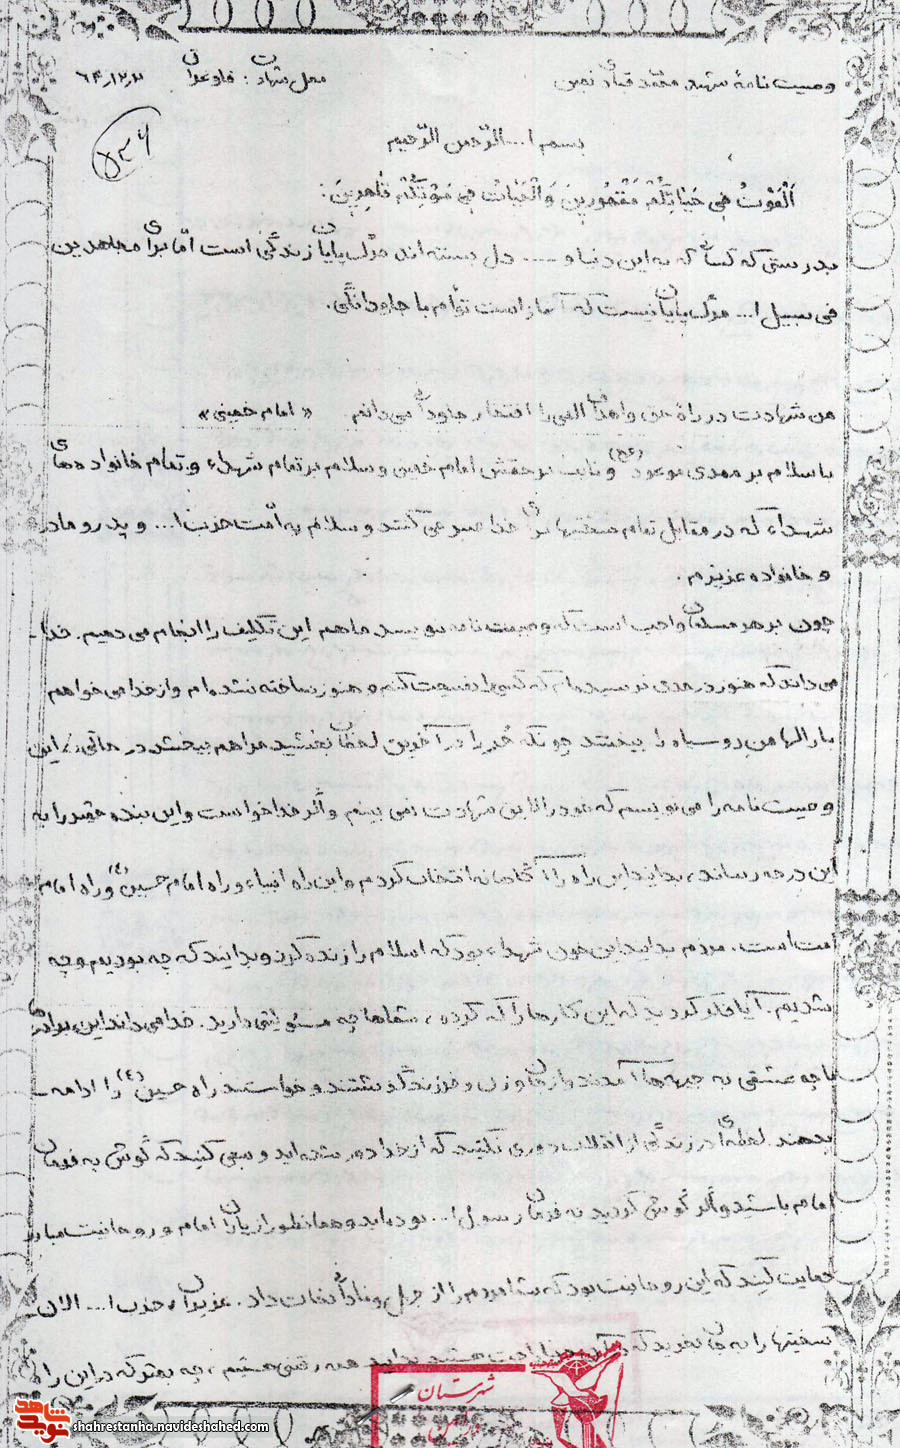 وصیت نامهٔ شهید محمد قباد نجبی محل شهادت : فاو عراق ۶۴،۱۲،۲۱
۵۲۶
بسم ا...الرّحمن الرّحیم
اَلْمَوْتُ فِی حَیٰاتِکُمْ مَقْهُورِینَ وَالْحَیٰاتُ فِی مَوْتِکُمْ قٰاهِرِینَ.
بدرستی که کسانی که به این دنیا و .... دل بسته اند مرگ پایان زندگی است امّا برای مجاهدین
فی سبیل ا... مرگ پایان نیست که آغاز است توأم با جاودانگی.
من شهادت در راه حق و اهداف الهی را افتخار جاودانی می دانم. «امام خمینی»
با سلام بر مهدی موعود (عج) و نایب بر حقش امام خمینی و سلام بر تمام شهداء و تمام خانواده های
شهداء که در مقابل تمام سختیها برای خدا صبر می کنند و سلام به امّت حزب ا... و پدر و مادر
و خانواده عزیزم.
چون بر هر مسلمان واجب است که وصیت نامه بنویسد ما هم این تکلیف را انجام می دهیم. خدا
می داند که هنوز در حدی نرسیده ام که کسی را نصیحت کنم و هنوز ساخته نشده ام و از خدا می خواهم
بارالها من روسیاه را ببخشد چونکه حُر را در آخرین لحظات بخشید مرا هم ببخشد در حالی این
وصیت نامه را می نویسم که خود را لایق شهادت نمی بینم و اگر خدا خواست و این بنده حقیر را به
این درجه رساند، بدانید این راه را آگاهانه انتخاب کردم و این راه انبیاء و راه امام حسین (ع) و راه امام
امت است. مردم بدانید این خون شهداء بود که اسلام را زنده کرد و بدانید که چه بودیم و چه
شدیم. آیا فکر کردید که این کارها را که کرده، شماها چه مسئولیتی دارید. خدا می داند این برادرها
با چه عشقی به جبهه ها آمدند و از جان و زن و فرزند گذشتند و خواستند راه حسین (ع) را ادامه
بدهند. لحظه ای در زندگی از انقلاب دوری نکنید که از خدا دور شده اید و سعی کنید که گوش به فرمان
امام باشید و اگر گوش کردید به فرمان رسول ا... بوده اید و همانطور از یاران امام و روحانیت مبارز
حمایت کنید که این روحانیت بود که شما مردم را از جهل و نادانی نجات داد. عزیزان حزب ا... الان
سختیها را به جان بخرید که همه رفتنی هستیم، چه بهتر که در این راه
شهرستان
shahrestanha.navideshahed.com
نوید شاهد